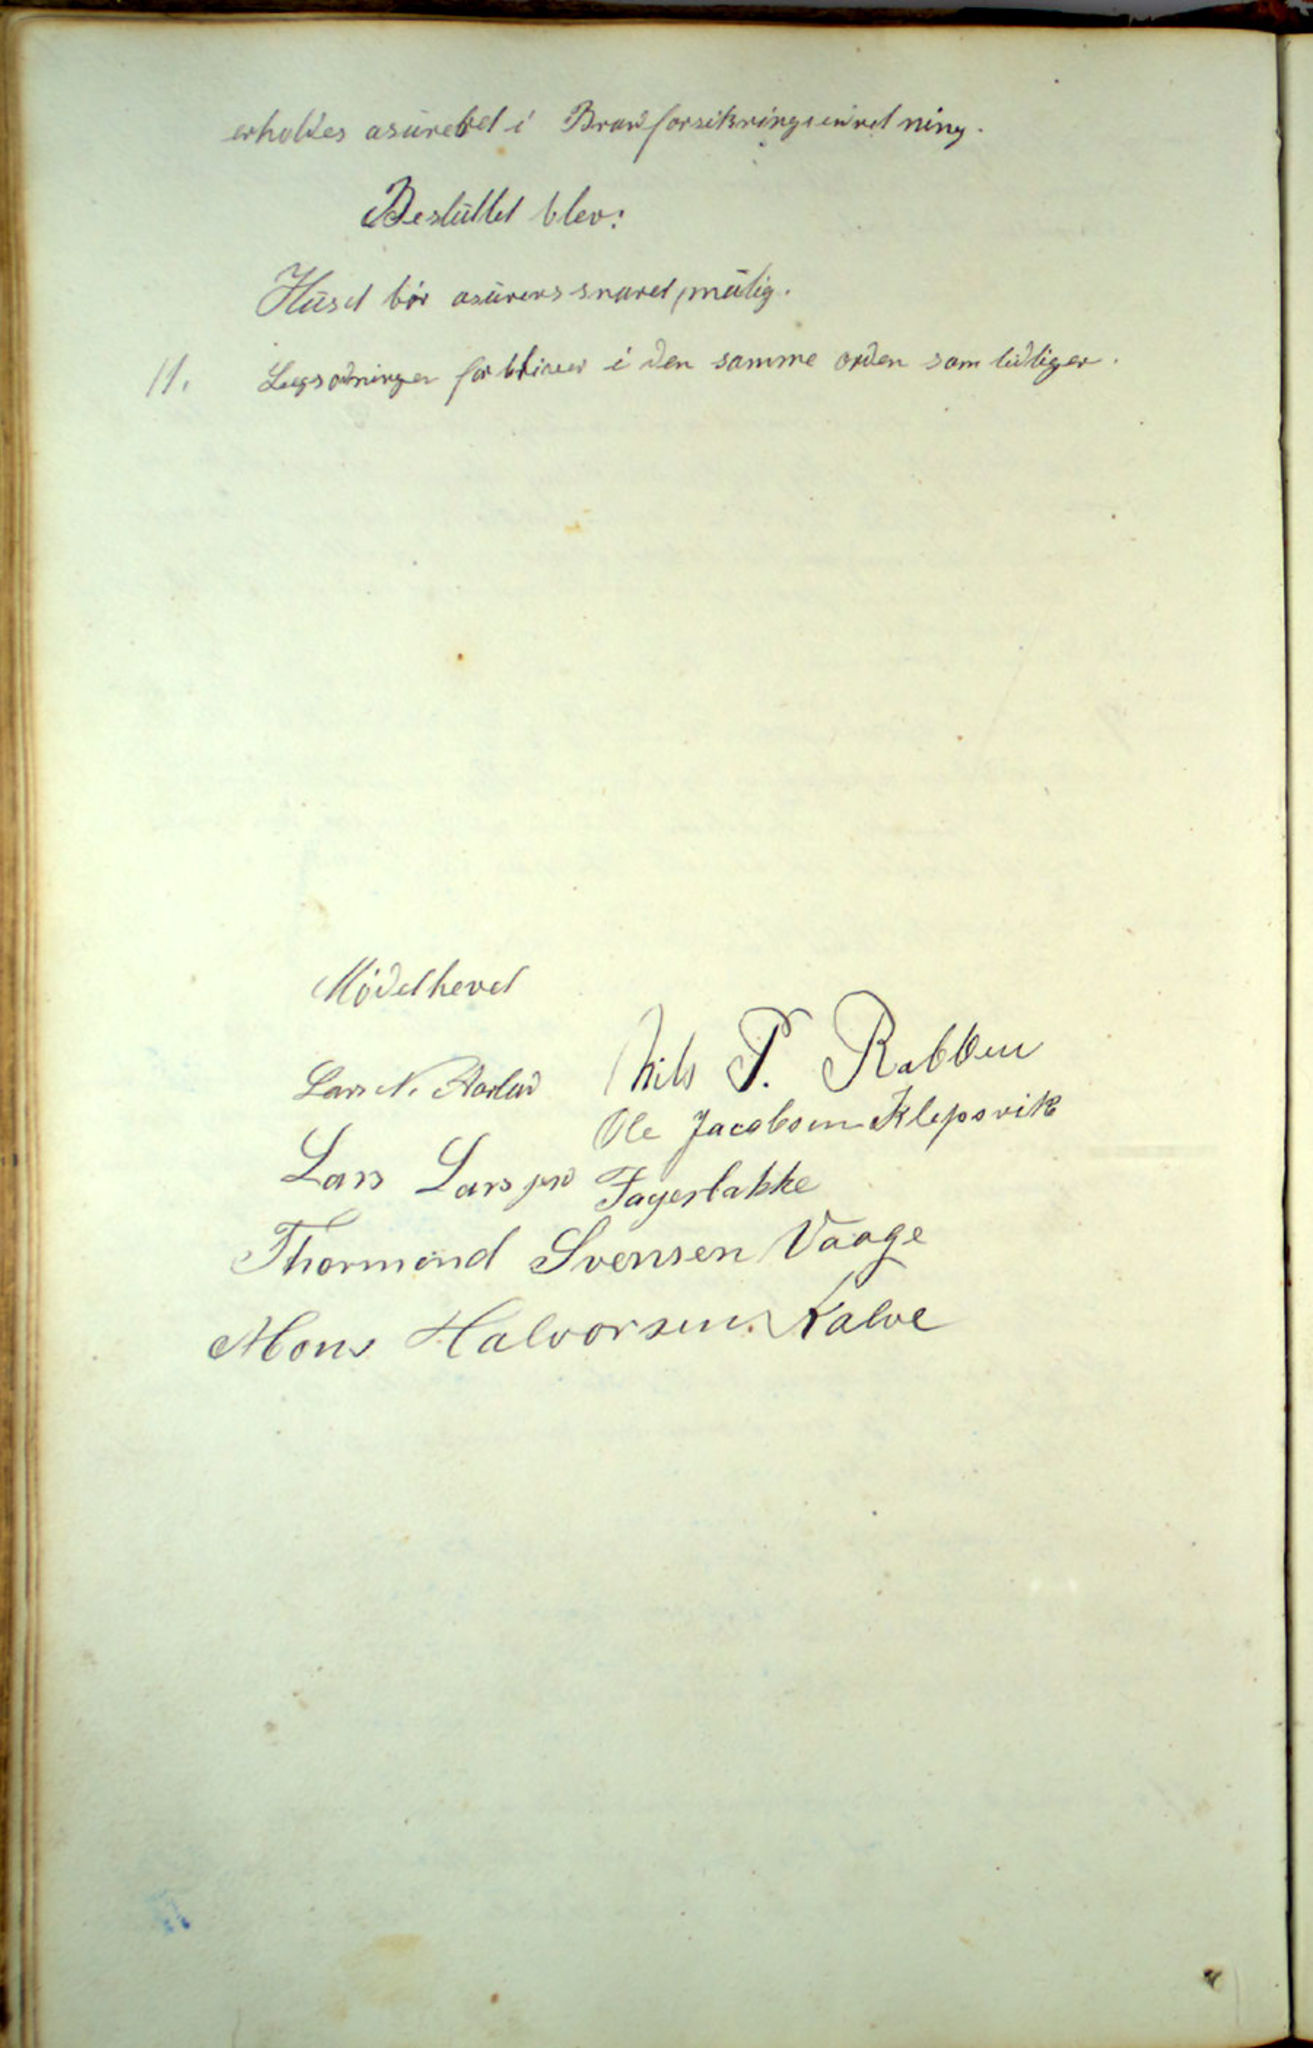 erholdes asüreret i Brandforsikringsindretning.
Beslüttet blev:
Hüset bör asüreres snarest mülig.
11. Legsordningen forbliver i den samme orden som tidligere.
Mødet hevet
Lars N. Nils P. Rabben
Ole Jacobsen Klepsvik
Lars Lars søn Fagerbakke
Thormond Svensen Vaage
Mons Halvorsen Kalve